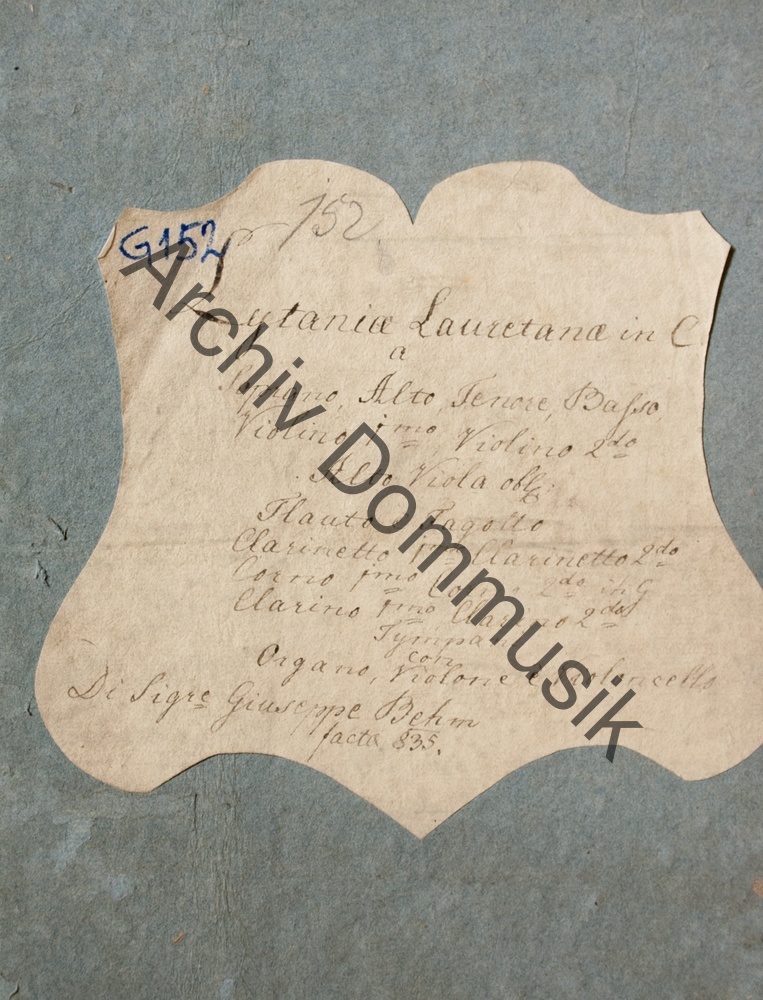 152
G152
Lytaniæ Lauretanæ in C.
a
Soprano, Alto, Tenore, Basso,
Violino 1mo Violino 2do
Alto Viola oblig:
Flauto e Fagotto
Clarinetto 1mo Clarinetto 2do
Corno 1mo Corno 2do in G
Clarino 1mo Clarino 2do
Tympa
con
Organo, Violone e Violoncello
Di Sigre Giuseppe Behm
factæ 835.
Archiv Dommusik